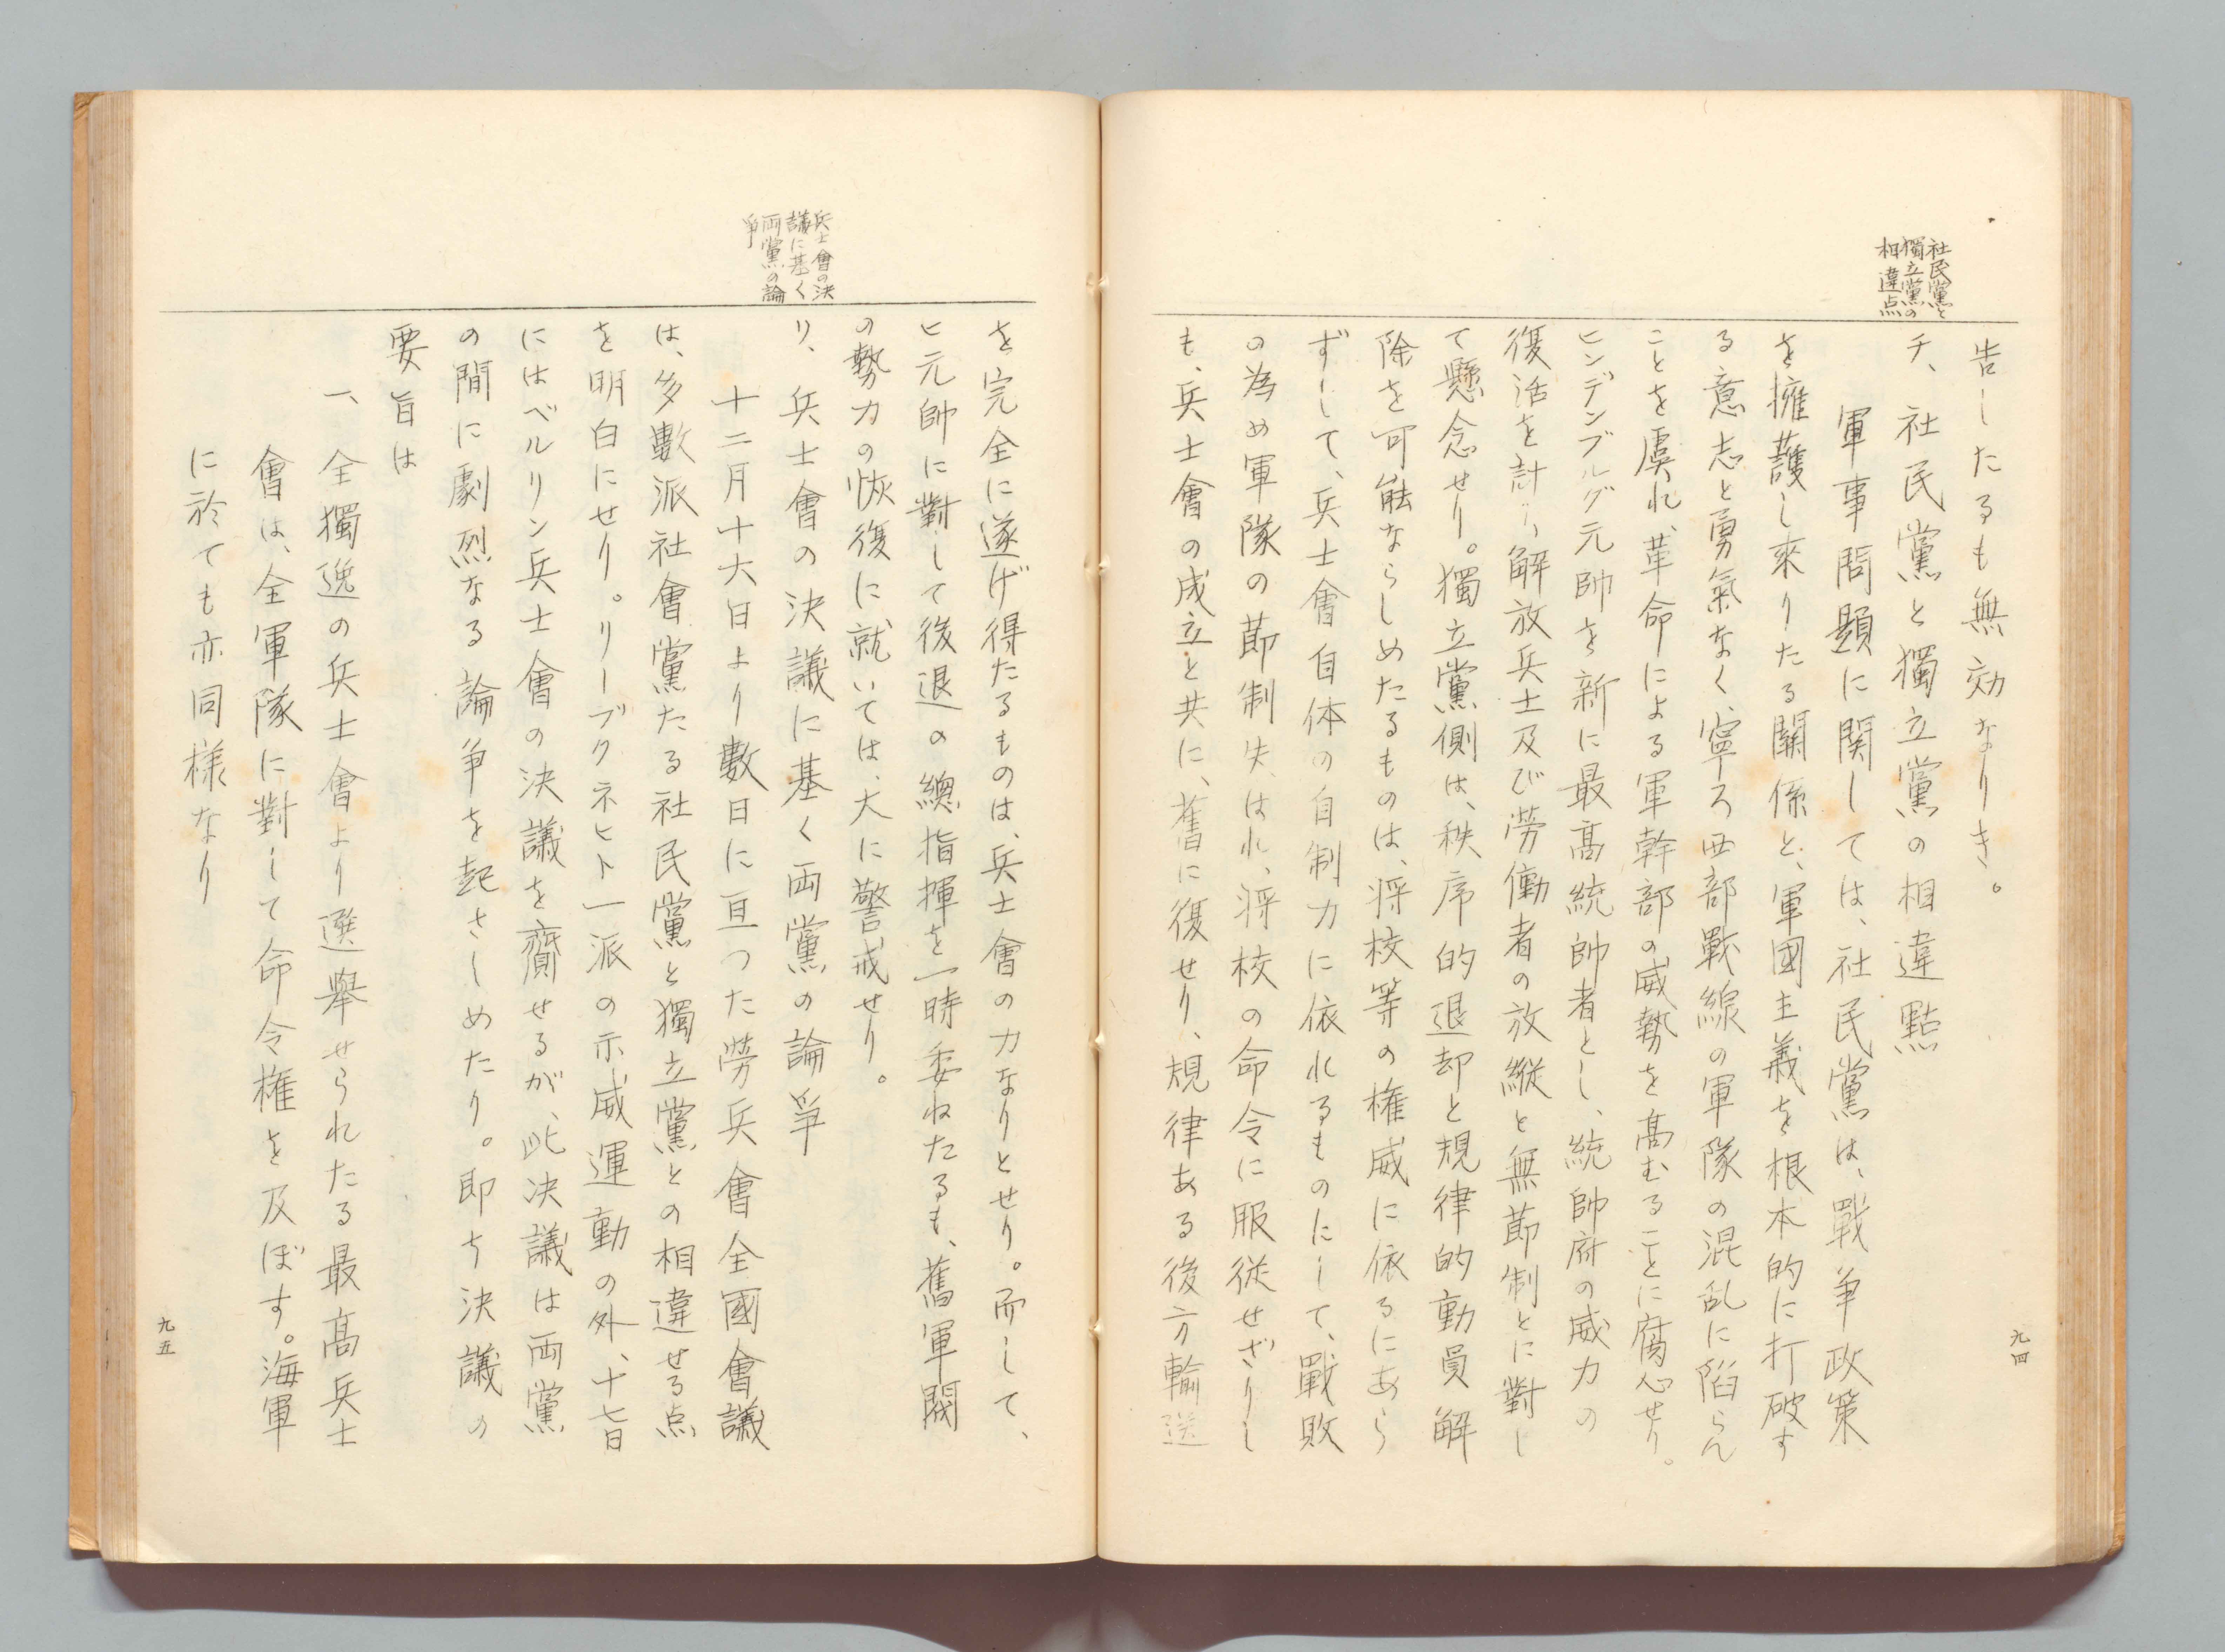 社民黨と
獨立黨の
相違点
告したるも無効なりき。
チ、社民黨と獨立黨の相違點
軍事問題に関しては、社民黨は、戰爭政策
を擁護し來りたる關係と、軍國主義を根本的に打破す
る意志と勇氣なく、寧ろ西部戰線の軍隊の混乱に陷らん
ことを虞れ、革命による軍幹部の威勢を高むることに腐心せり。
ヒンデンブルグ元帥を新に最高統帥者とし、統帥府の威力の
復活を計り、解放兵士及び労働者の放縦と無節制とに對し
て懸念せり。獨立黨側は、秩序的退却と規律的動員解
除を可能ならしめたるものは、将校等の権威に依るにあら
ずして、兵士會自体の自制力に依れるものにして、戰敗
の為め軍隊の節制失はれ、将校の命令に服従せざりし
も、兵士會の成立と共に、舊に復せり、規律ある後方輸送
九四
兵士會の決
議に基く
両黨の論
爭
を完全に遂げ得たるものは、兵士會の力なりとせり。而して、
ヒ元帥に對して後退の總指揮を一時委ねたるも、舊軍閥
の勢力の恢復に就いては、大に警戒せり。
リ、兵士會の決議に基く両黨の論爭
十二月十六日より數日に亘つた労兵會全國會議
は、多數派社會黨たる社民黨と獨立黨との相違せる点
を明白にせり。リーブクネヒト一派の示威運動の外、十七日
にはベルリン兵士會の決議を齎せるが、此決議は両黨
の間に劇烈なる論爭を起さしめたり。即ち決議の
要旨は
一、全獨逸の兵士會より選擧せられたる最高兵士
會は、全軍隊に對して命令権を及ぼす。海軍
に於ても亦同様なり
九五